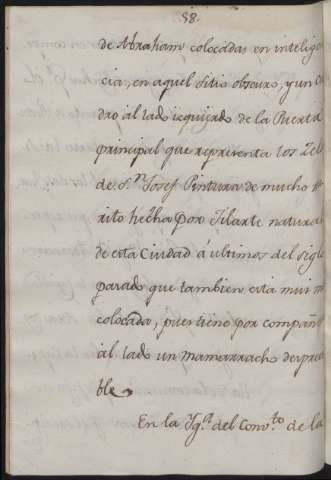 58.
de Abraham, colocadas en inteligen
cia, en aquel sitio obscuro, y un cua
dro al lado izquierdo de la Puerta
principal que representa los Zel
de Sn. Josef Pintura de mucho me
rito hecha por Ilarte natural
de esta Ciudad á ultimos del siglo
pasado que tambien esta mui mal
colocada, pues tiene por compañe
al lado un mamarracho desprecia
ble.
En la Yga. del Convto. de la